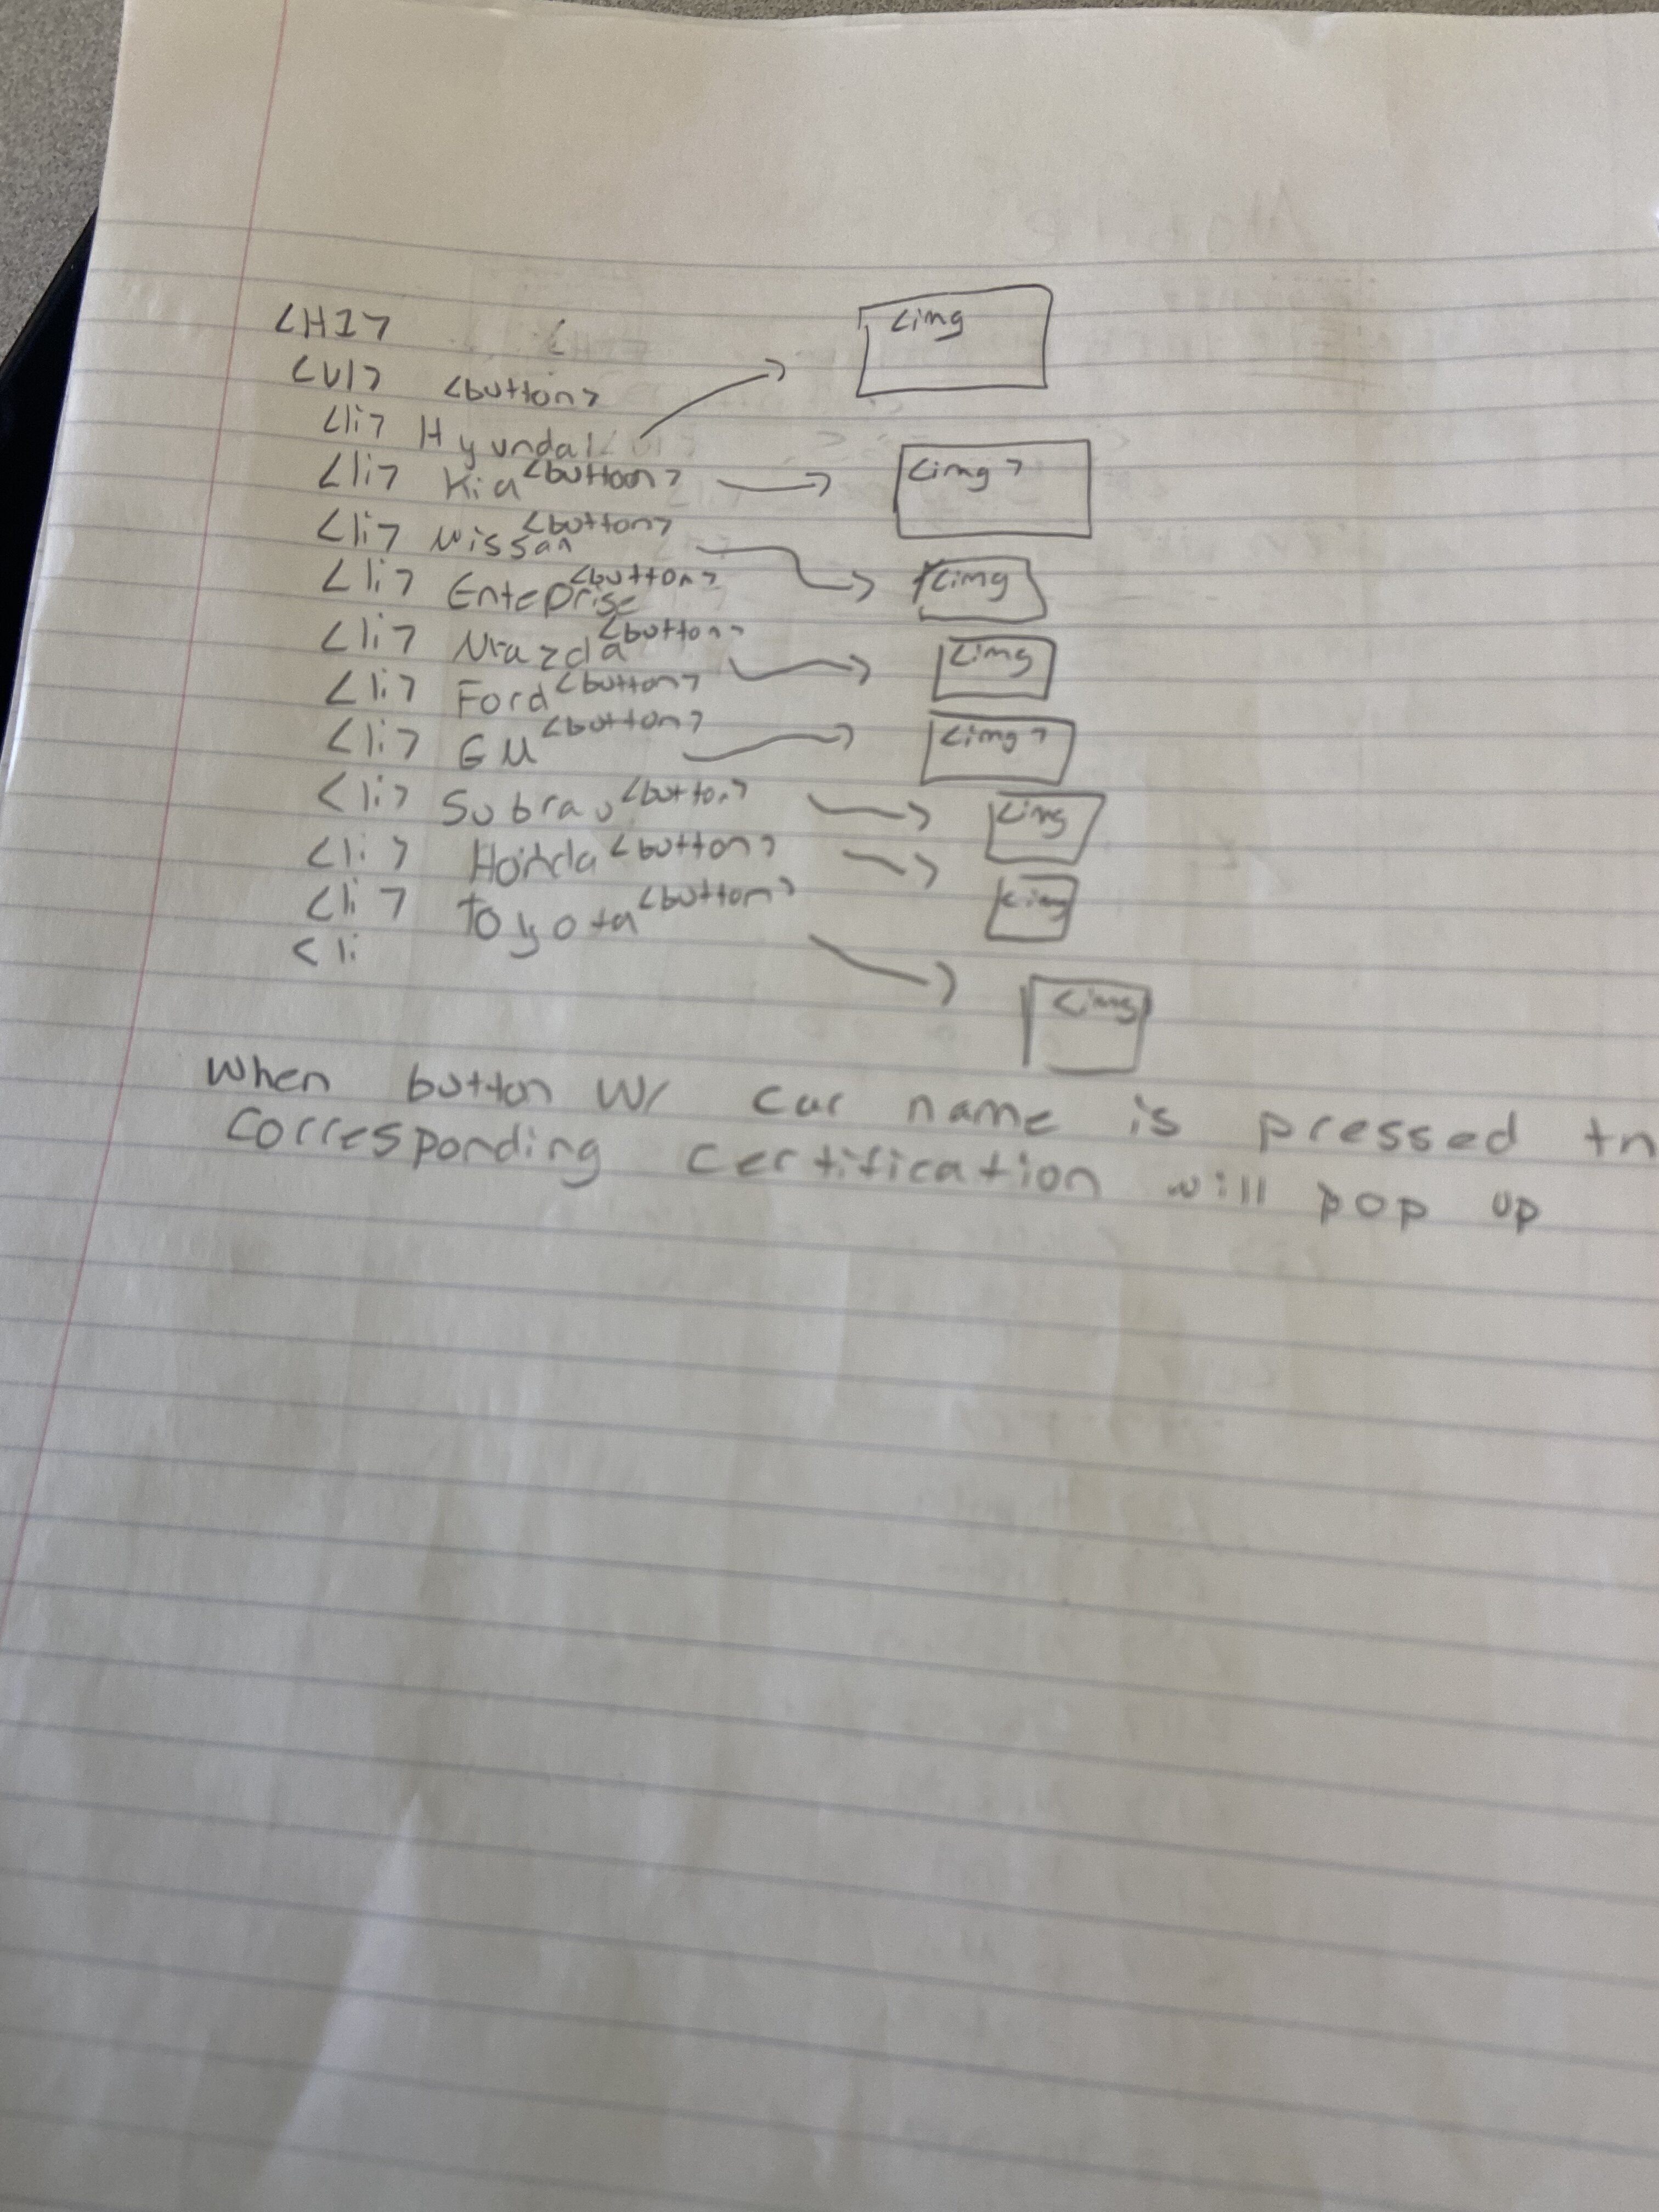 <H1>
<img
<Ul>
<button>
<li> Hyundai
<li> Kia <button>
<img>
<li> Nissan <button>
<li> Enteprise <button>
<img
<li> Mazda <button>
<img
<li> Ford <button>
<li> GM <button>
<img>
<li> Subrau <button>
<img
<li> Honda <button>
<img
<li> Toyota <button>
<li
<img
When button W/ car name is pressed th
corresponding certification will pop up